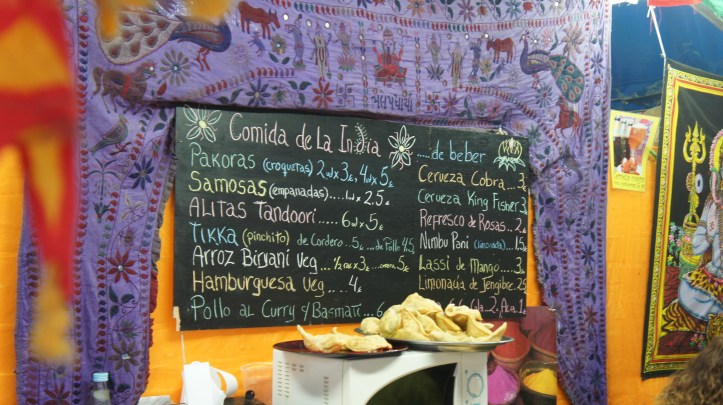 Comida de La India
Pakoras (croquetas) 2ud x 3€, 4ud x 5€
Samosas (empanadas)....1ud x 2.5€
Alitas Tandoori..... 6ud x 5€
Tikka (pinchito) de Cordero..5€ ...de Pollo 4,5
Arroz Biryani Veg... ½ rac x 3€ ... 5€
Hamburguesa Veg.... 4€
Pollo al Curry y Basmati... 6
.....de beber
Cerveza Cobra... 3
Cerveza King Fisher 3
Refresco de Rosas.. 2
Nimbu Pani (limonada).. 1,5
Lassi de Mango.... 3
Limonada de Jengibre. 2,5
2, Agua 1